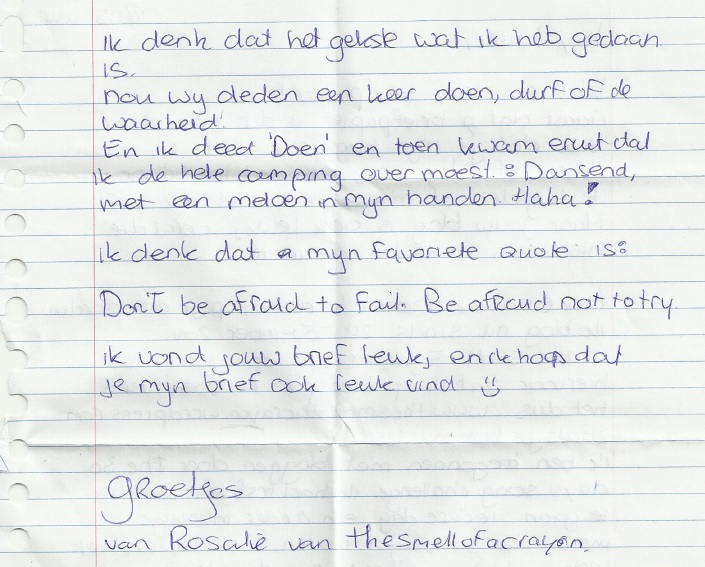 Ik denk dat het gekste wat ik heb gedaan
is.
nou wy deden een keer doen, durf of de
waarheid.
En ik deed 'Doen' en toen kwam eruit dat
ik de hele camping over moest : Dansend,
met een meloen in myn handen. Haha!
ik denk dat myn favoriete quote is:
Don't be afraid to fail. Be afraid not to try
ik vond jouw brief leuk, en ik hoop dat
je myn brief ook leuk vind :)
GRoetjes
van Rosalie van thesmellofacrayon.